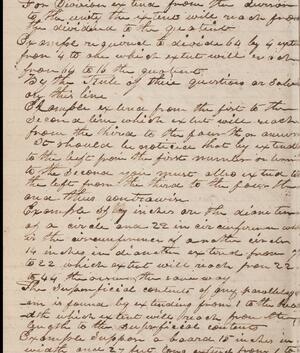 For Division extend from the divisor
to the unit the extent will reach from
the dividend to the quotient
Example required to divide 64 by 4 extend
from 4 to one which extent will reach
from 64 to 16 the quotient
By the rule of three questions are solv
by this line
Example extend from the first to the
Second term which extent will reach
from the third to the fourth or answer
It should be noticed that by extend
to the left from the first number or term
to the Second you must allso extend to
the left from the third to the fourth
and thus contrawise
Example if 7 inches are the diameter
of a circle and 22 in circumference what
is the circumference of another circle
14 inches in diameter extend from 7
to 22 which extent will reach from 14
to 44 the answer
The Superficial contents of any parallelogram
is found by extending from 1 to the brea
dth which extent will reach from the
length to the superficial contents
Example Suppose a board 15 inches in
width and 27 feet long extend from 1 to